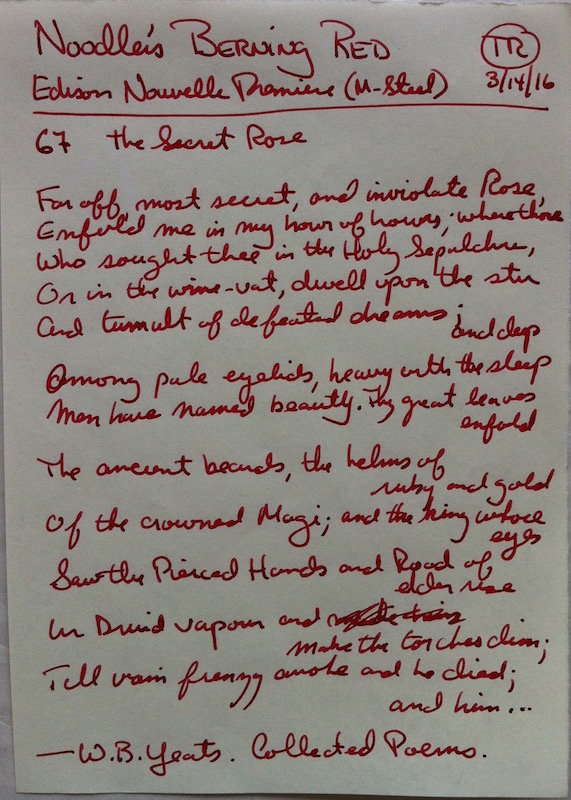 Noodler's Berning Red
TR
Edison Nouvelle Premiere (M-Steel)
3/14/16
67 The Secret Rose
Far off, most secret, and inviolate Rose,
Enfold me in my hour of hours; where those
Who sought thee in the Holy Sepulchre,
Or in the wine-vat, dwell upon the stir
And tumult of defeated dreams;
and deep
Among pale eyelids, heavy with the sleep
Men have named beauty. Thy great leaves
enfold
The ancient beards, the helms of
ruby and gold
Of the crowned Magi; and the king whose
eyes
Saw the Pierced Hands and Rood of
elder rise
In Druid vapour and
make the torches dim;
Till vain frenzy awoke and he died;
and him...
—W.B. Yeats. Collected Poems.